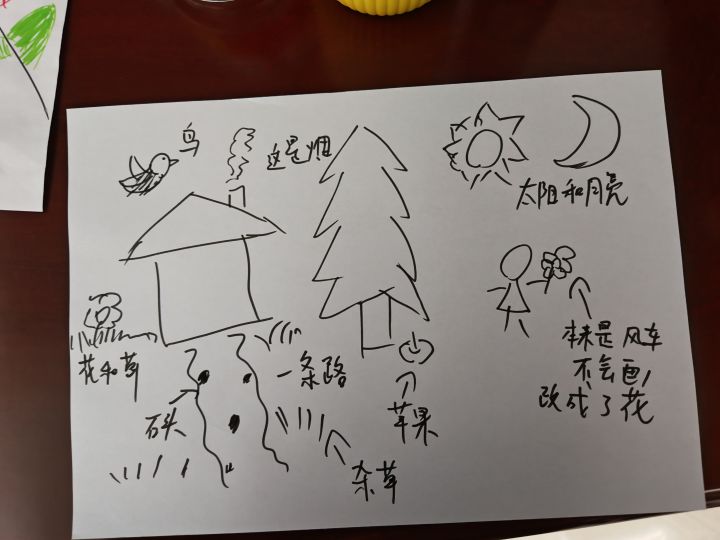 鸟
这是烟
太阳和月亮
本来是风车
不会画
改成了花
花和草
一条路
石头
苹果
杂草